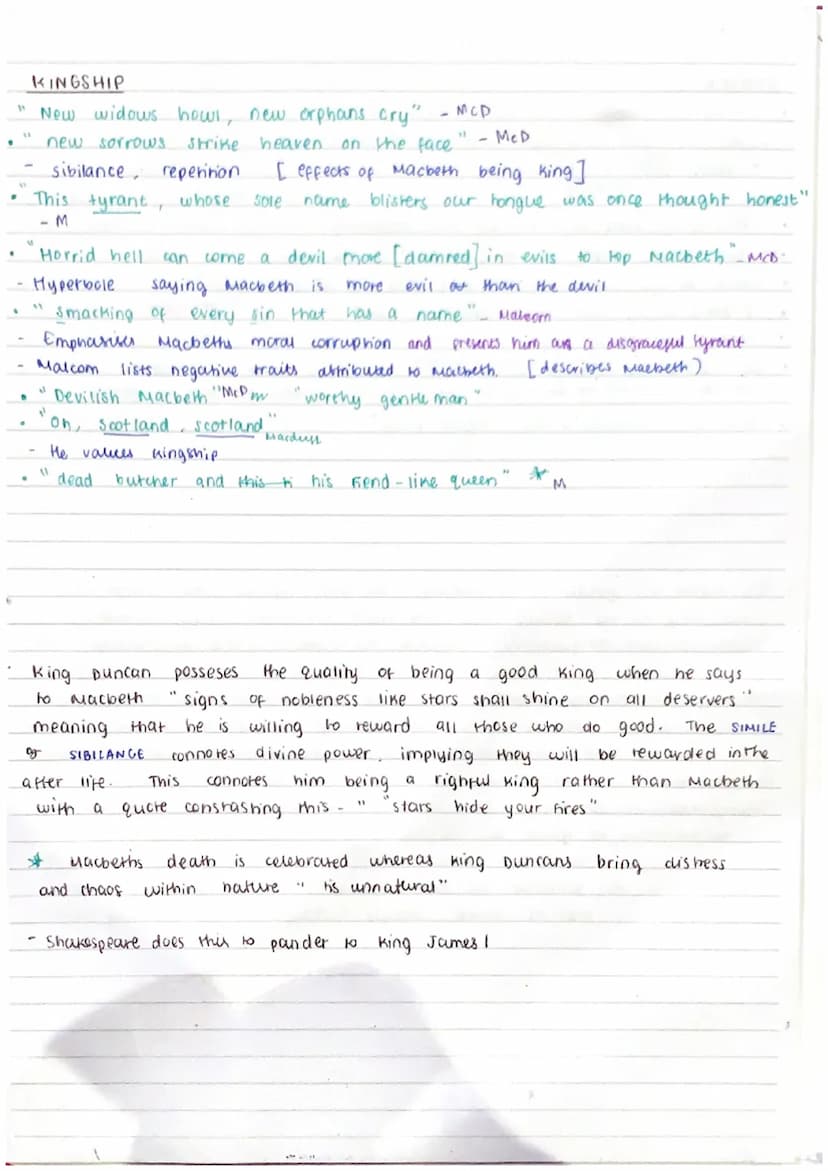 KINGSHIP
" New widows howl, new orphans cry" - McD
• " new sorrows strike heaven on the face" - McD
- sibilance, repetition [effects of Macbeth being king]
• "This tyrant, whose sole name blisters our tongue was once thought honest"
- M
• "Horrid hell can come a devil more [damred] in evils to top Macbeth" - McD
- Hyperbole saying Macbeth is more evil than the devil
• " Smacking of every sin that has a name" - Malcom
- Emphasises Macbeths moral corruption and presents him as a disgraceful tyrant
- Malcom lists negative traits attributed to Macbeth. [describes Macbeth)
• "Devilish Macbeth" McD "worthy gentleman"
• "Oh, Scotland, Scotland" Macduff
- He values kingship
• " dead butcher and this his fiend-like queen" * M
· King Duncan posseses the quality of being a good king when he says
to Macbeth "signs of nobleness like stars shall shine on all deservers"
meaning that he is willing to reward all those who do good. The SIMILE
& SIBILANCE connotes divine power, implying they will be rewarded in the
after life. This connotes him being a rightful king rather than Macbeth
with a quote constrasting this - " "stars hide your fires"
* Macbeths death is celebrated whereas king Duncans bring distress
and chaos within nature " tis unnatural"
- Shakespeare does this to pander to King James I